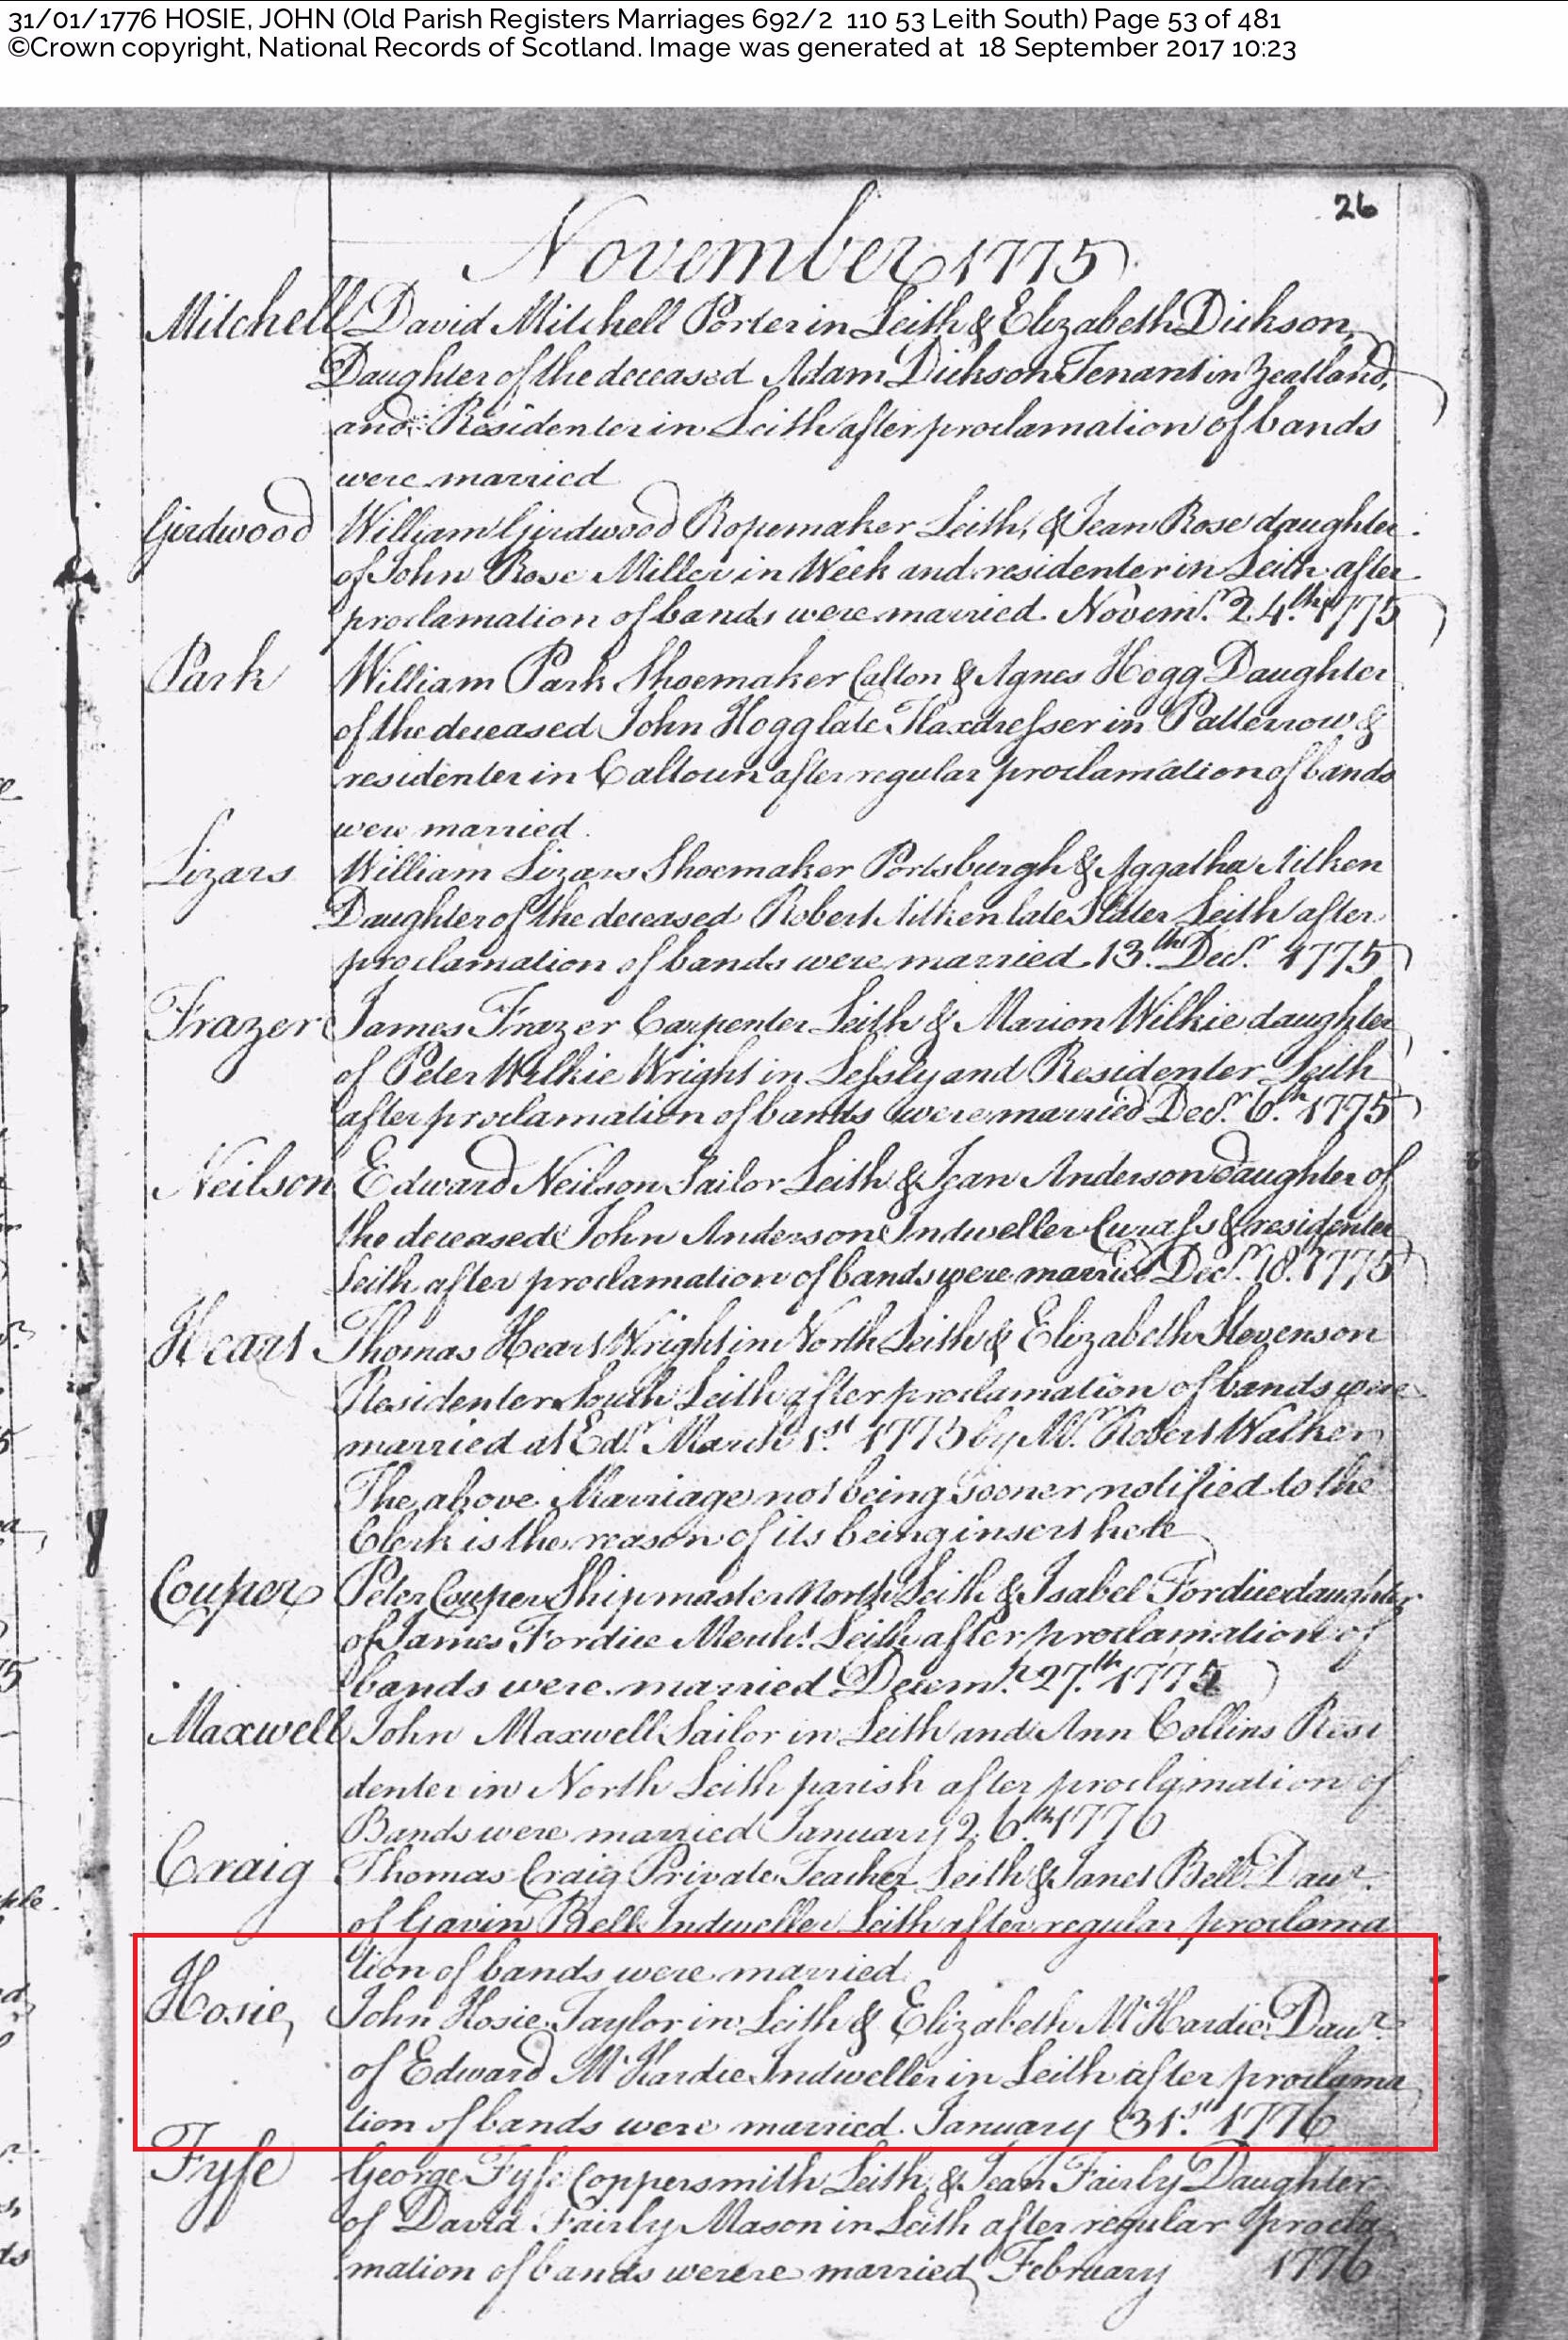 31/01/1776 HOSIE, JOHN (Old Parish Registers Marriages 692/2 110 53 Leith South) Page 53 of 481
©Crown copyright, National Records of Scotland. Image was generated at 18 September 2017 10:23
26
November 1775
Mitchell David Mitchell Porter in Leith & Elizabeth Dickson
Daughter of the deceased Adam Dickson Tenant in Zeatland,
and Residenter in Leith after proclamation of bands
were married
Girdwood William Girdwood Ropemaker Leith, & Jean Rose daughter
of John Rose Miller in Week and residenter in Leith after
proclamation of bands were married Novemr. 24th. 1775
Park William Park Shoemaker Calton & Agnes Hogg Daughter
of the deceased John Hogg late Flaxdresser in Potterrow &
residenter in Caltoun after regular proclamation of bands
were married.
Lizars William Lizars Shoemaker Portsburgh & Aggatha Aitken
Daughter of the deceased Robert Aitken late Slater Leith after
proclamation of bands were married 13th. Decr. 1775
Frazer James Frazer Carpenter Leith & Marion Wilkie daughter
of Peter Wilkie Wright in Lessly and Residenter Leith
after proclamation of bands were married Decr. 6th. 1775
Neilson Edward Neilson Sailor Leith & Jean Anderson daughter of
the deceased John Anderson Indweller Curass & residenter
Leith after proclamation of bands were married Decr. 18th. 1775
Heart Thomas Heart Wright in North Leith & Elizabeth Stevenson
Residenter South Leith after proclamation of bands were
married at Edr. March 1st 1775 by Mr. Robert Walker
The above Marriage not being sooner notified to the
Clerk is the reason of its being insert here
Couper Peter Couper Shipmaster North Leith & Isabel Fordice daughter
of James Fordice Mercht. Leith after proclamation of
bands were married Decemr. 27th. 1775
Maxwell John Maxwell Sailor in Leith and Ann Collins Resi
denter in North Leith parish after proclamation of
Bands were married January 26th 1776
Craig Thomas Craig Private Teacher Leith & Janet Bell Dawr.
of Gavin Bell Indweller Leith after regular proclama
tion of bands were married.
Hosie, John Hosie Taylor in Leith & Elizabeth McHardie Dawr.
of Edward McHardie Indweller in Leith after proclama
tion of bands were married. January 31st. 1776
Fyfe George Fyfe Coppersmith Leith, & Jean Fairly Daughter
of David Fairly Mason in Leith after regular procla
mation of bands werere married February 1776